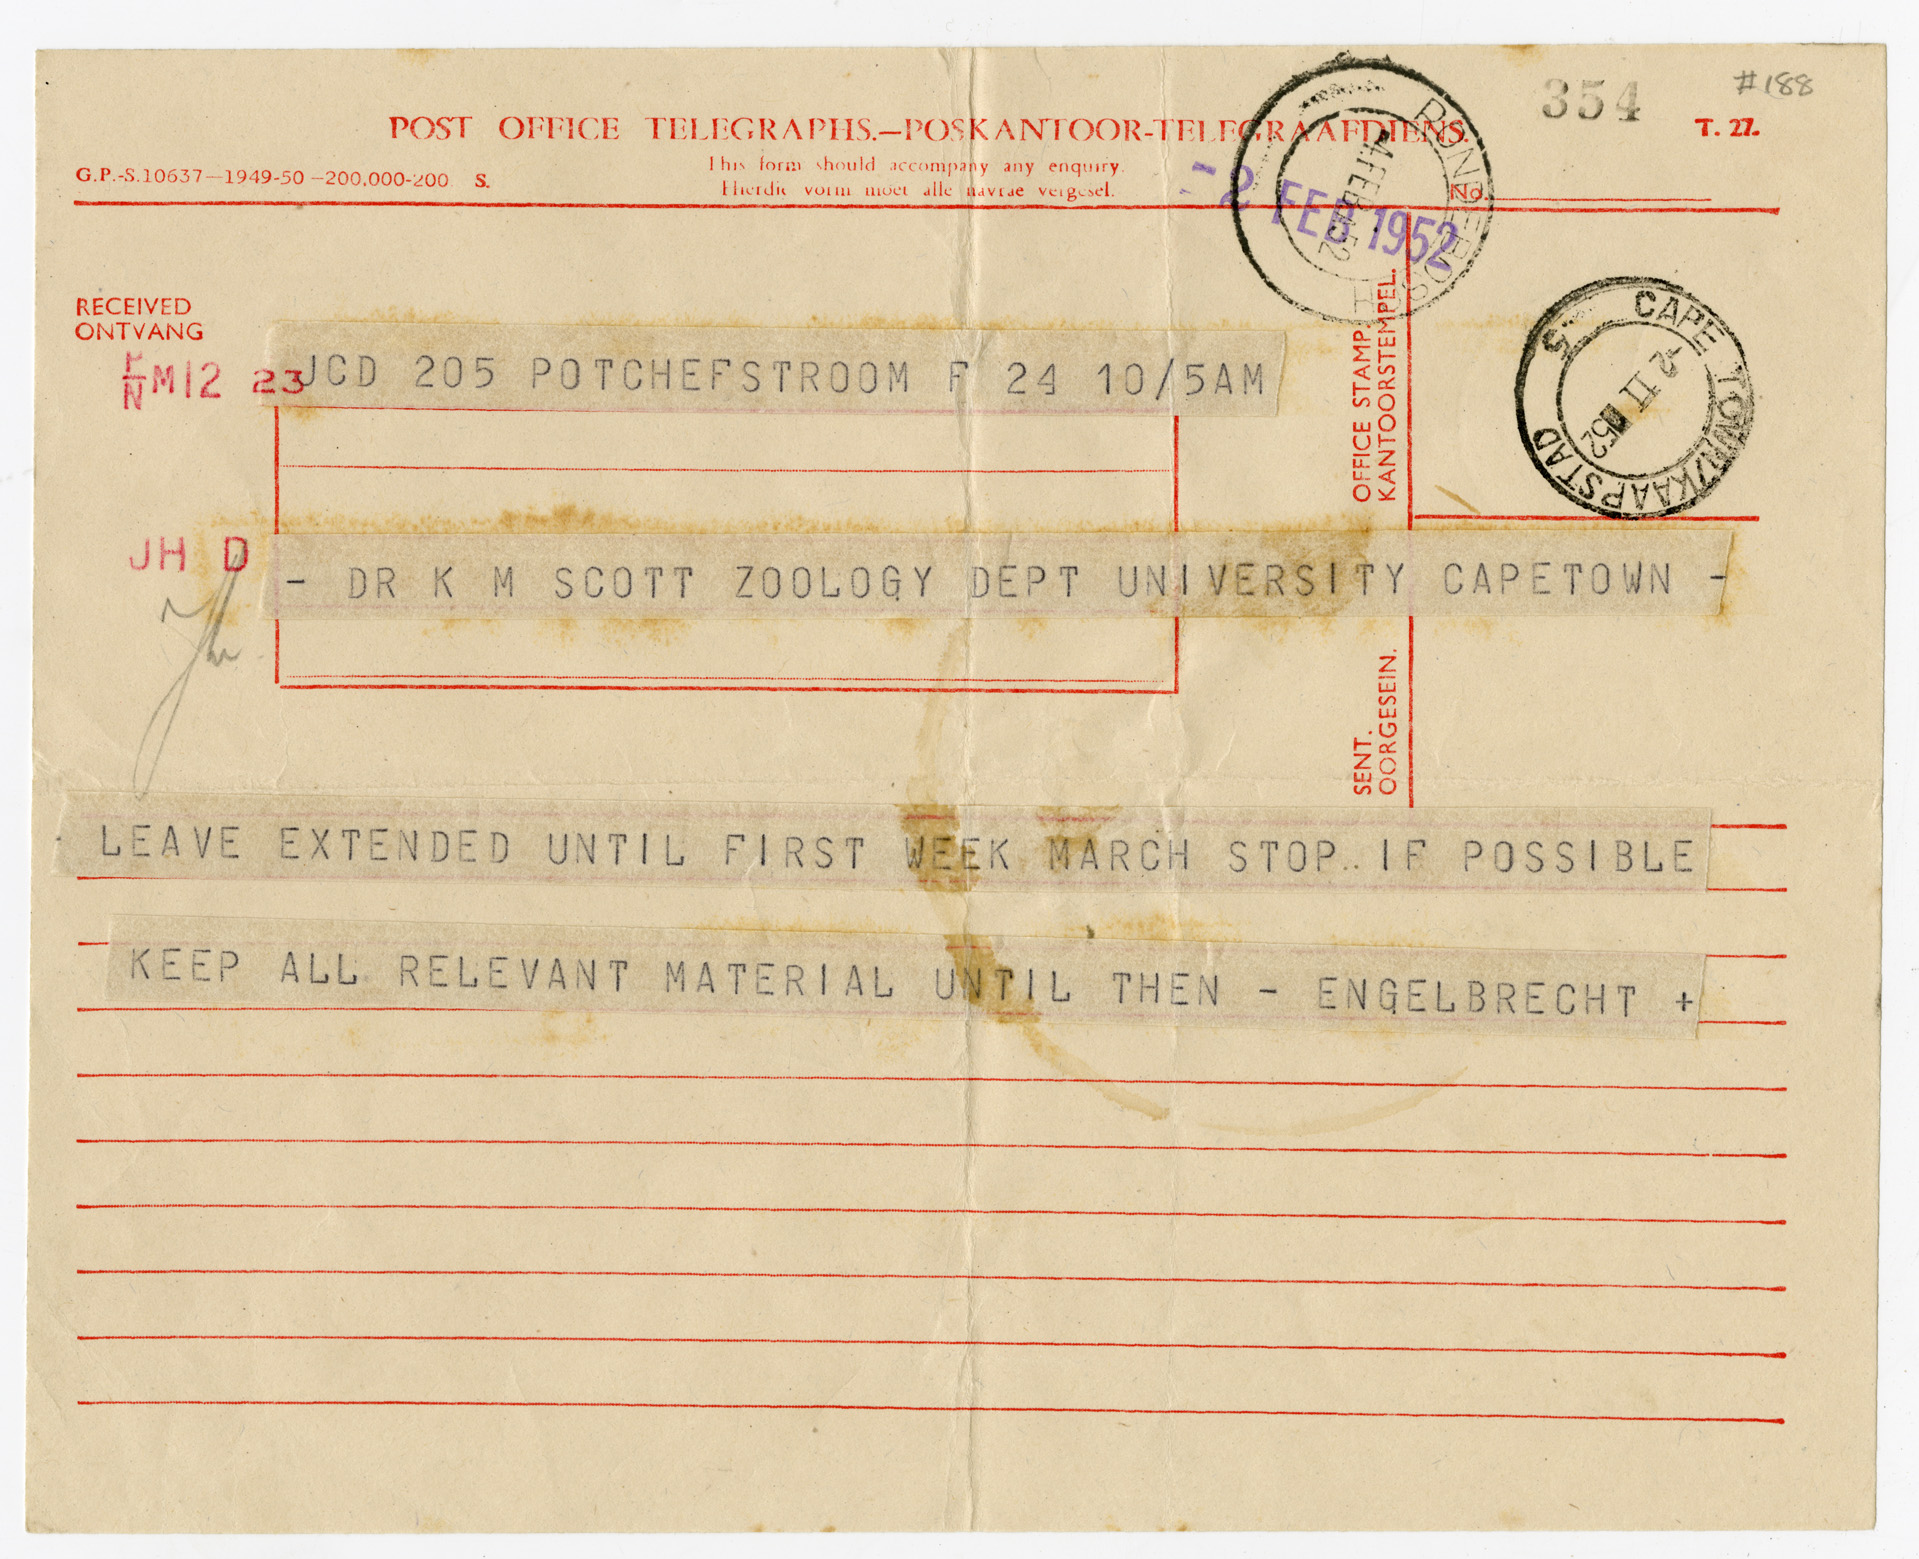 #188
354
POST OFFICE TELEGRAPHS.—POSKANTOOR-TELEGRAAFDIENS.
T. 27.
This form should accompany any enquiry.
G.P.-S.10637—1949-50—200,000-200 S.
Hierdie vorm moet alle navrae vergesel.
No.
RONDEBOSCH
4 FEB 52
-2 FEB 1952
RECEIVED
ONTVANG
OFFICE STAMP.
KANTOORSTEMPEL.
CAPE TOWN/KAAPSTAD
2 II 52
P/N M12 23
JCD 205 POTCHEFSTROOM F 24 10/5AM
JH D
- DR K M SCOTT ZOOLOGY DEPT UNIVERSITY CAPETOWN -
SENT.
OORGESEIN.
LEAVE EXTENDED UNTIL FIRST WEEK MARCH STOP.. IF POSSIBLE
KEEP ALL RELEVANT MATERIAL UNTIL THEN - ENGELBRECHT +